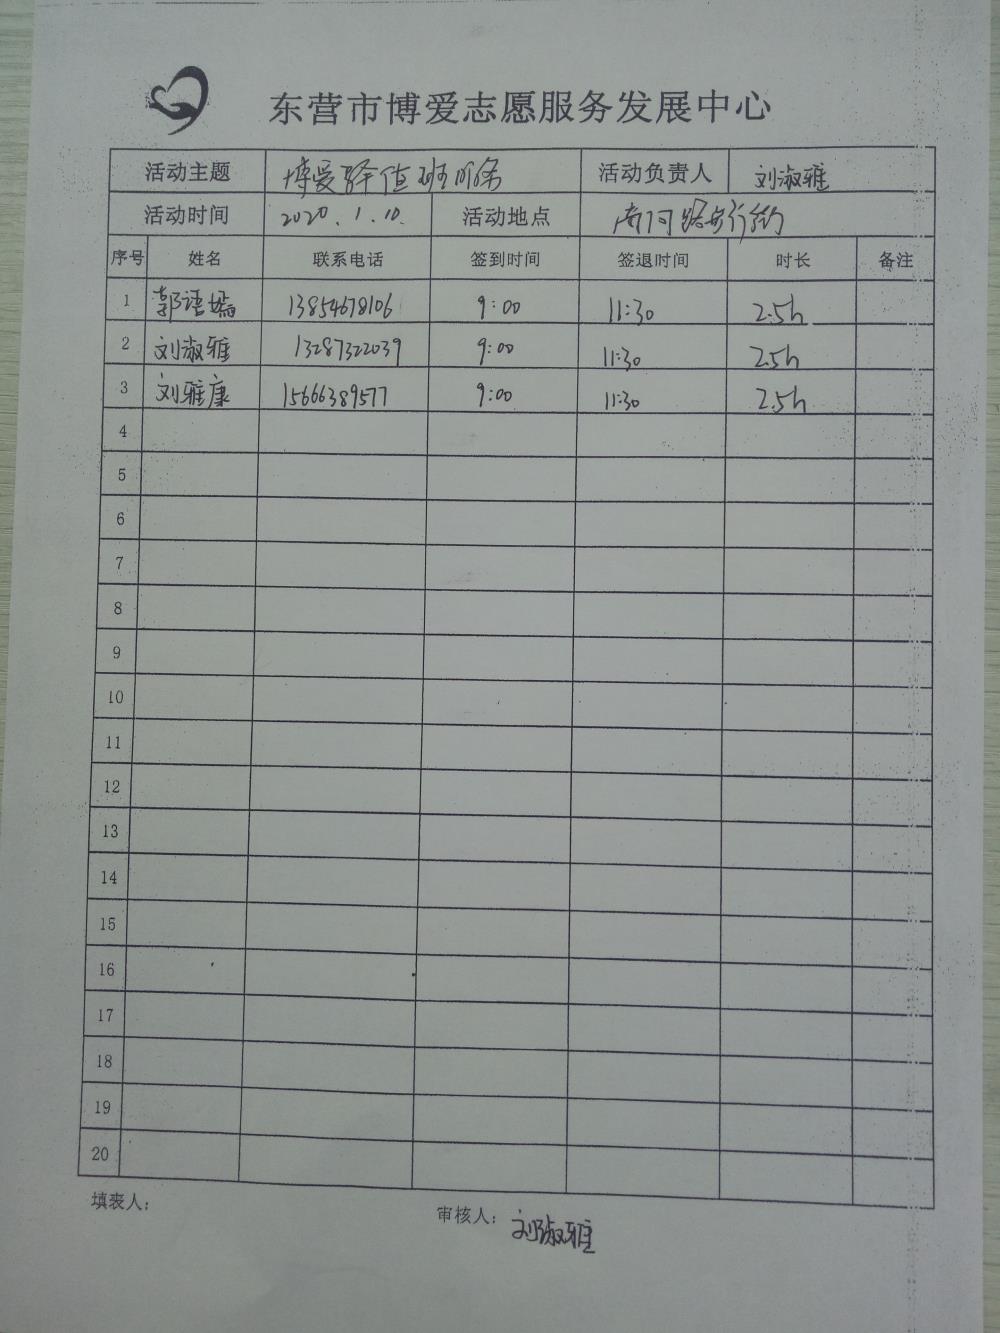 东营市博爱志愿服务发展中心
活动主题 博爱驿值班服务 活动负责人 刘淑雅
活动时间 2020.1.10. 活动地点
序号 姓名 联系电话 签到时间 签退时间 时长 备注
1 郭语嫣 13854678106 9:00 11:30 2.5h
2 刘淑雅 13287322039 9:00 11:30 2.5h
3 刘雅康 15666389577 9:00 11:30 2.5h
4
5
6
7
8
9
10
11
12
13
14
15
16
17
18
19
20
填表人: 审核人: 刘淑雅